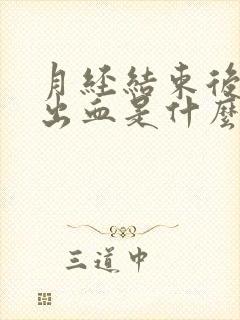 月經結束後
出血是什麼
三道中